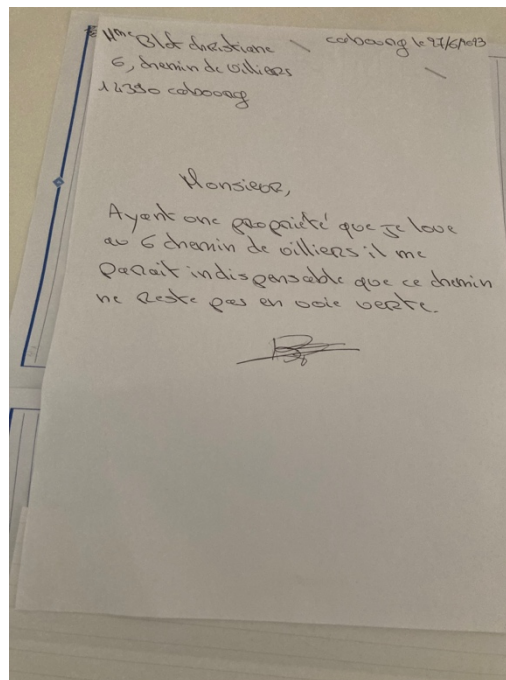 Mme Blot christiane
cabourg le 27/6/2023
6, chemin de villiers
14390 cabourg
Monsieur,
Ayant une propriété que je loue
au 6 chemin de villiers il me
parait indispensable que ce chemin
ne reste pas en voie verte.